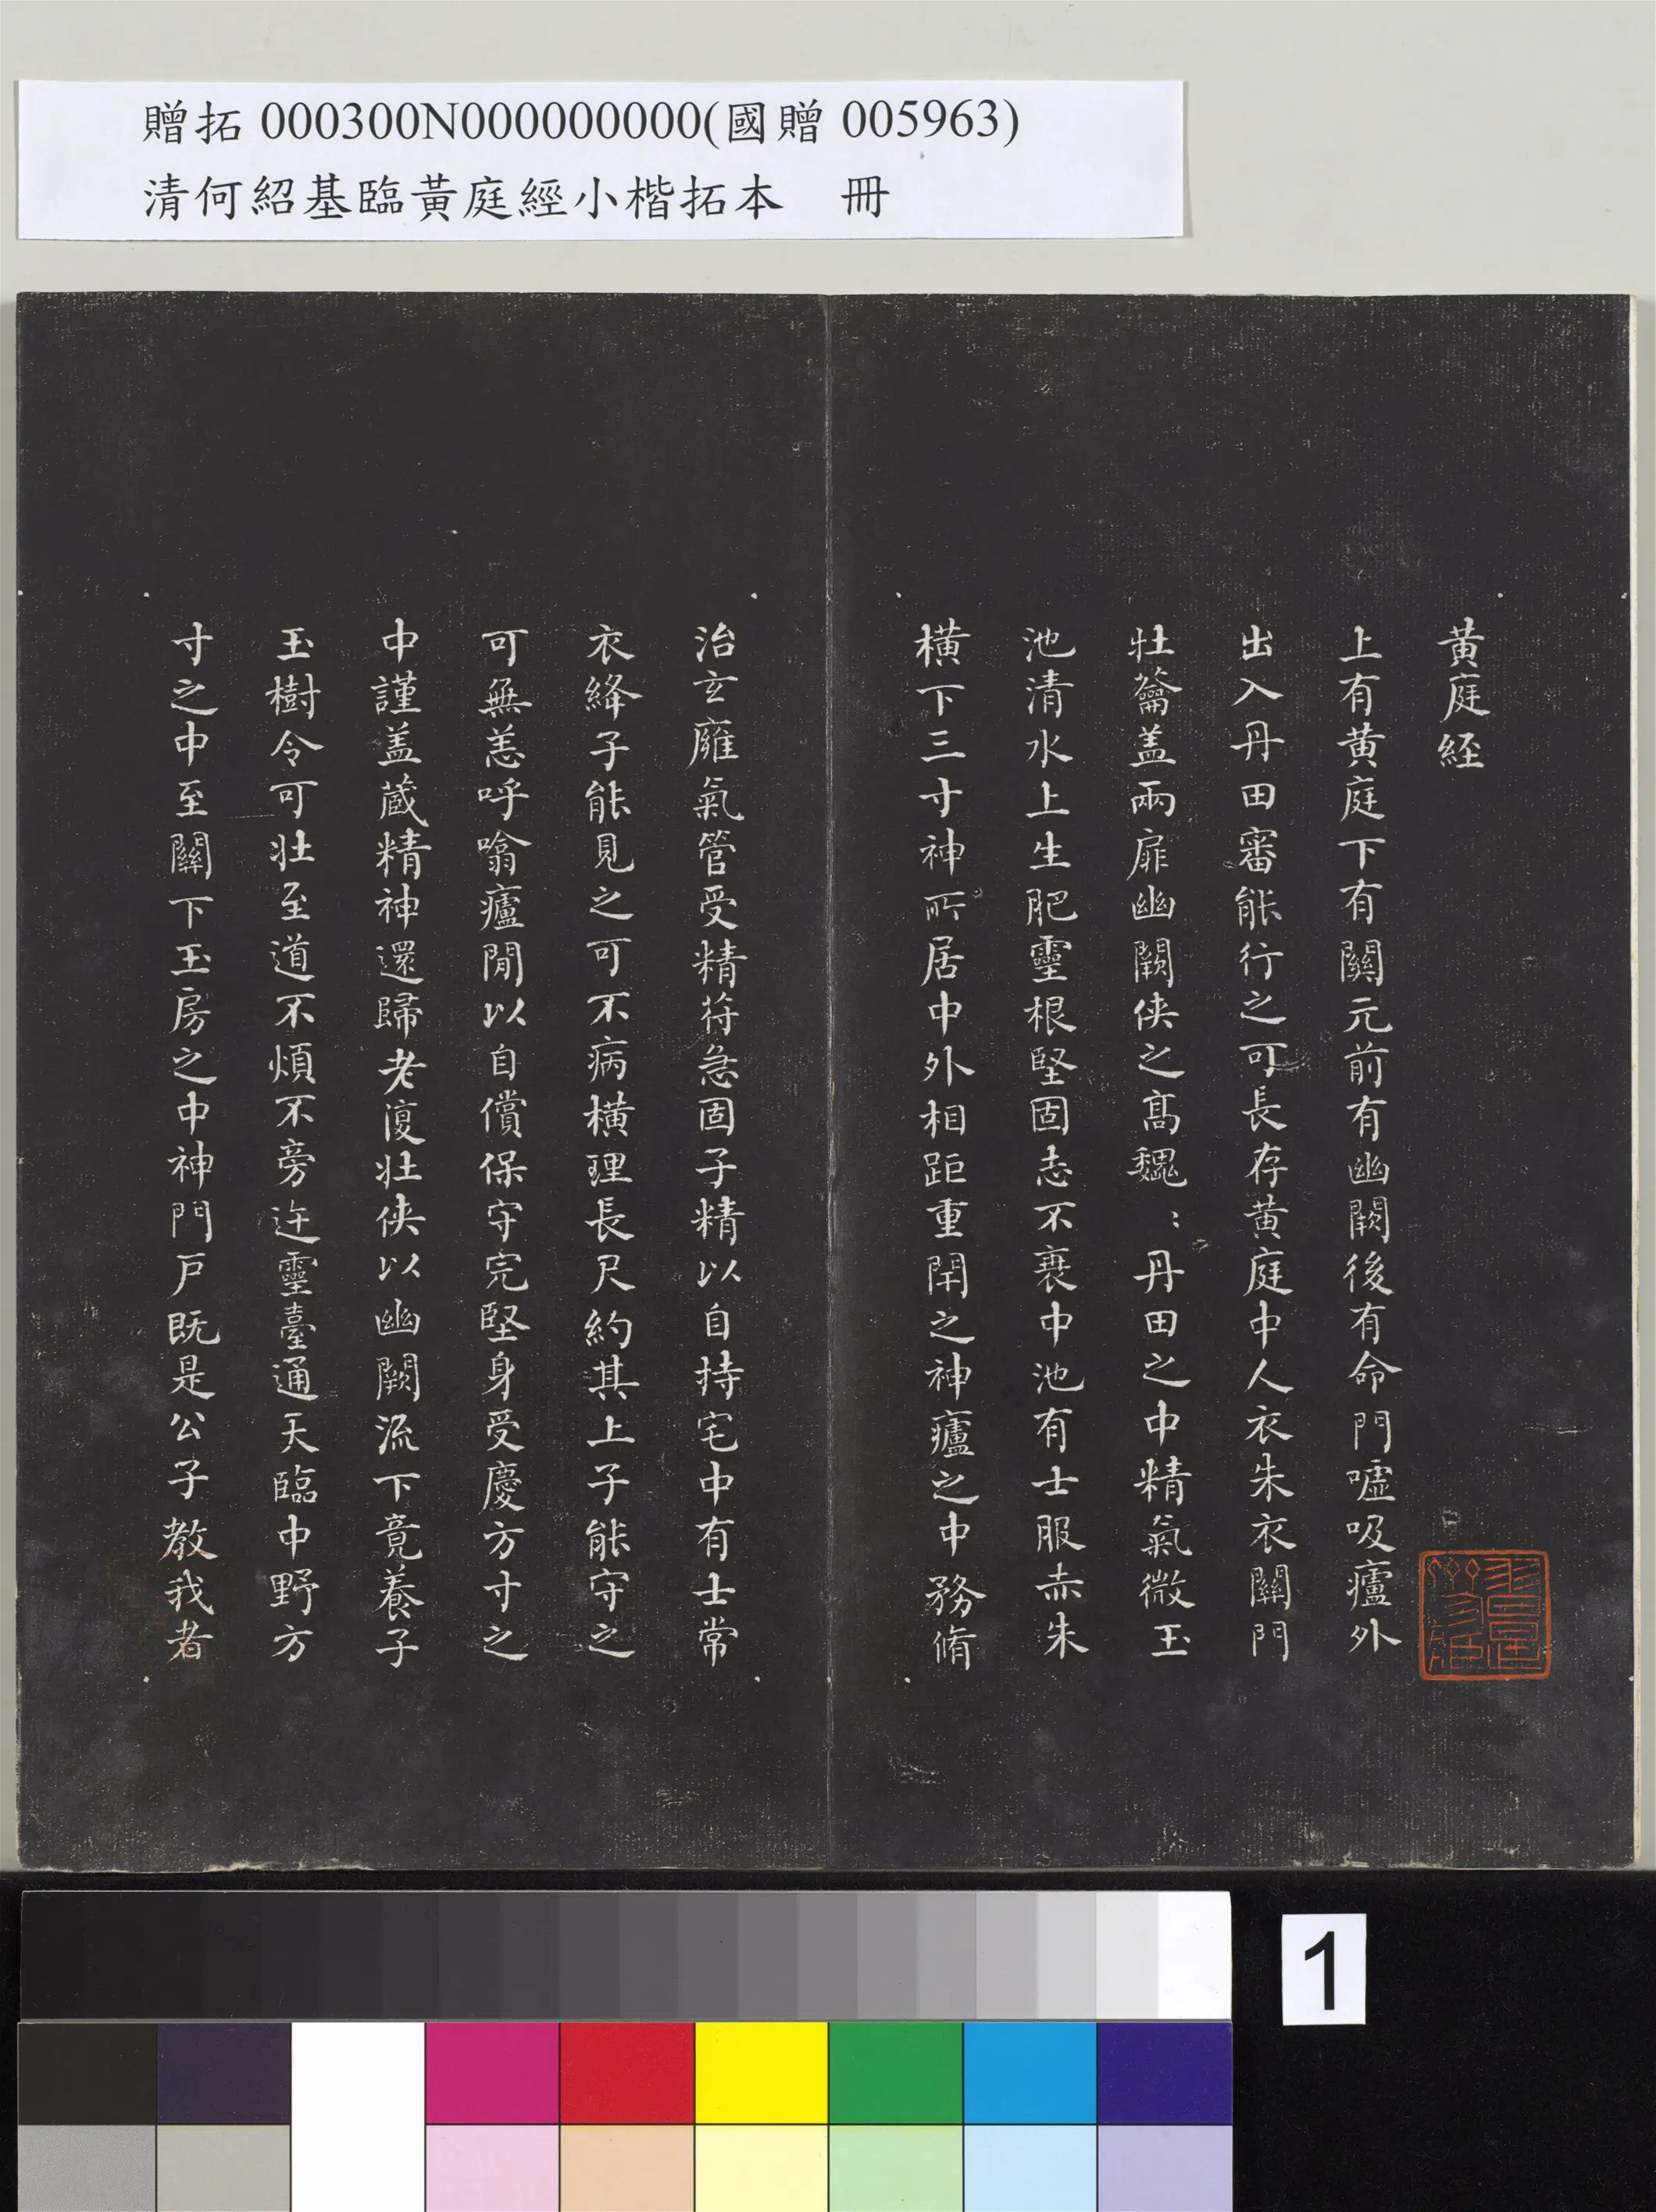 贈拓 000300N000000000(國贈 005963)
清何紹基臨黃庭經小楷拓本　冊
黄庭経
上有黄庭下有關元前有幽闕後有命門嘘吸廬外
出入丹田審能行之可長存黄庭中人衣朱衣關門
壯籥盖兩扉幽闕俠之髙魏：丹田之中精氣微玉
池清水上生肥靈根堅固志不衰中池有士服赤朱
橫下三寸神所居中外相距重閇之神廬之中務脩
治玄廱氣管受精符急固子精以自持宅中有士常
衣絳子能見之可不病橫理長尺約其上子能守之
可無恙呼噏廬閒以自償保守完堅身受慶方寸之
中謹盖蔵精神還歸老復壯俠以幽闕流下竟養子
玉樹令可壯至道不煩不旁迕靈臺通天臨中野方
寸之中至關下玉房之中神門戶既是公子教我者
1